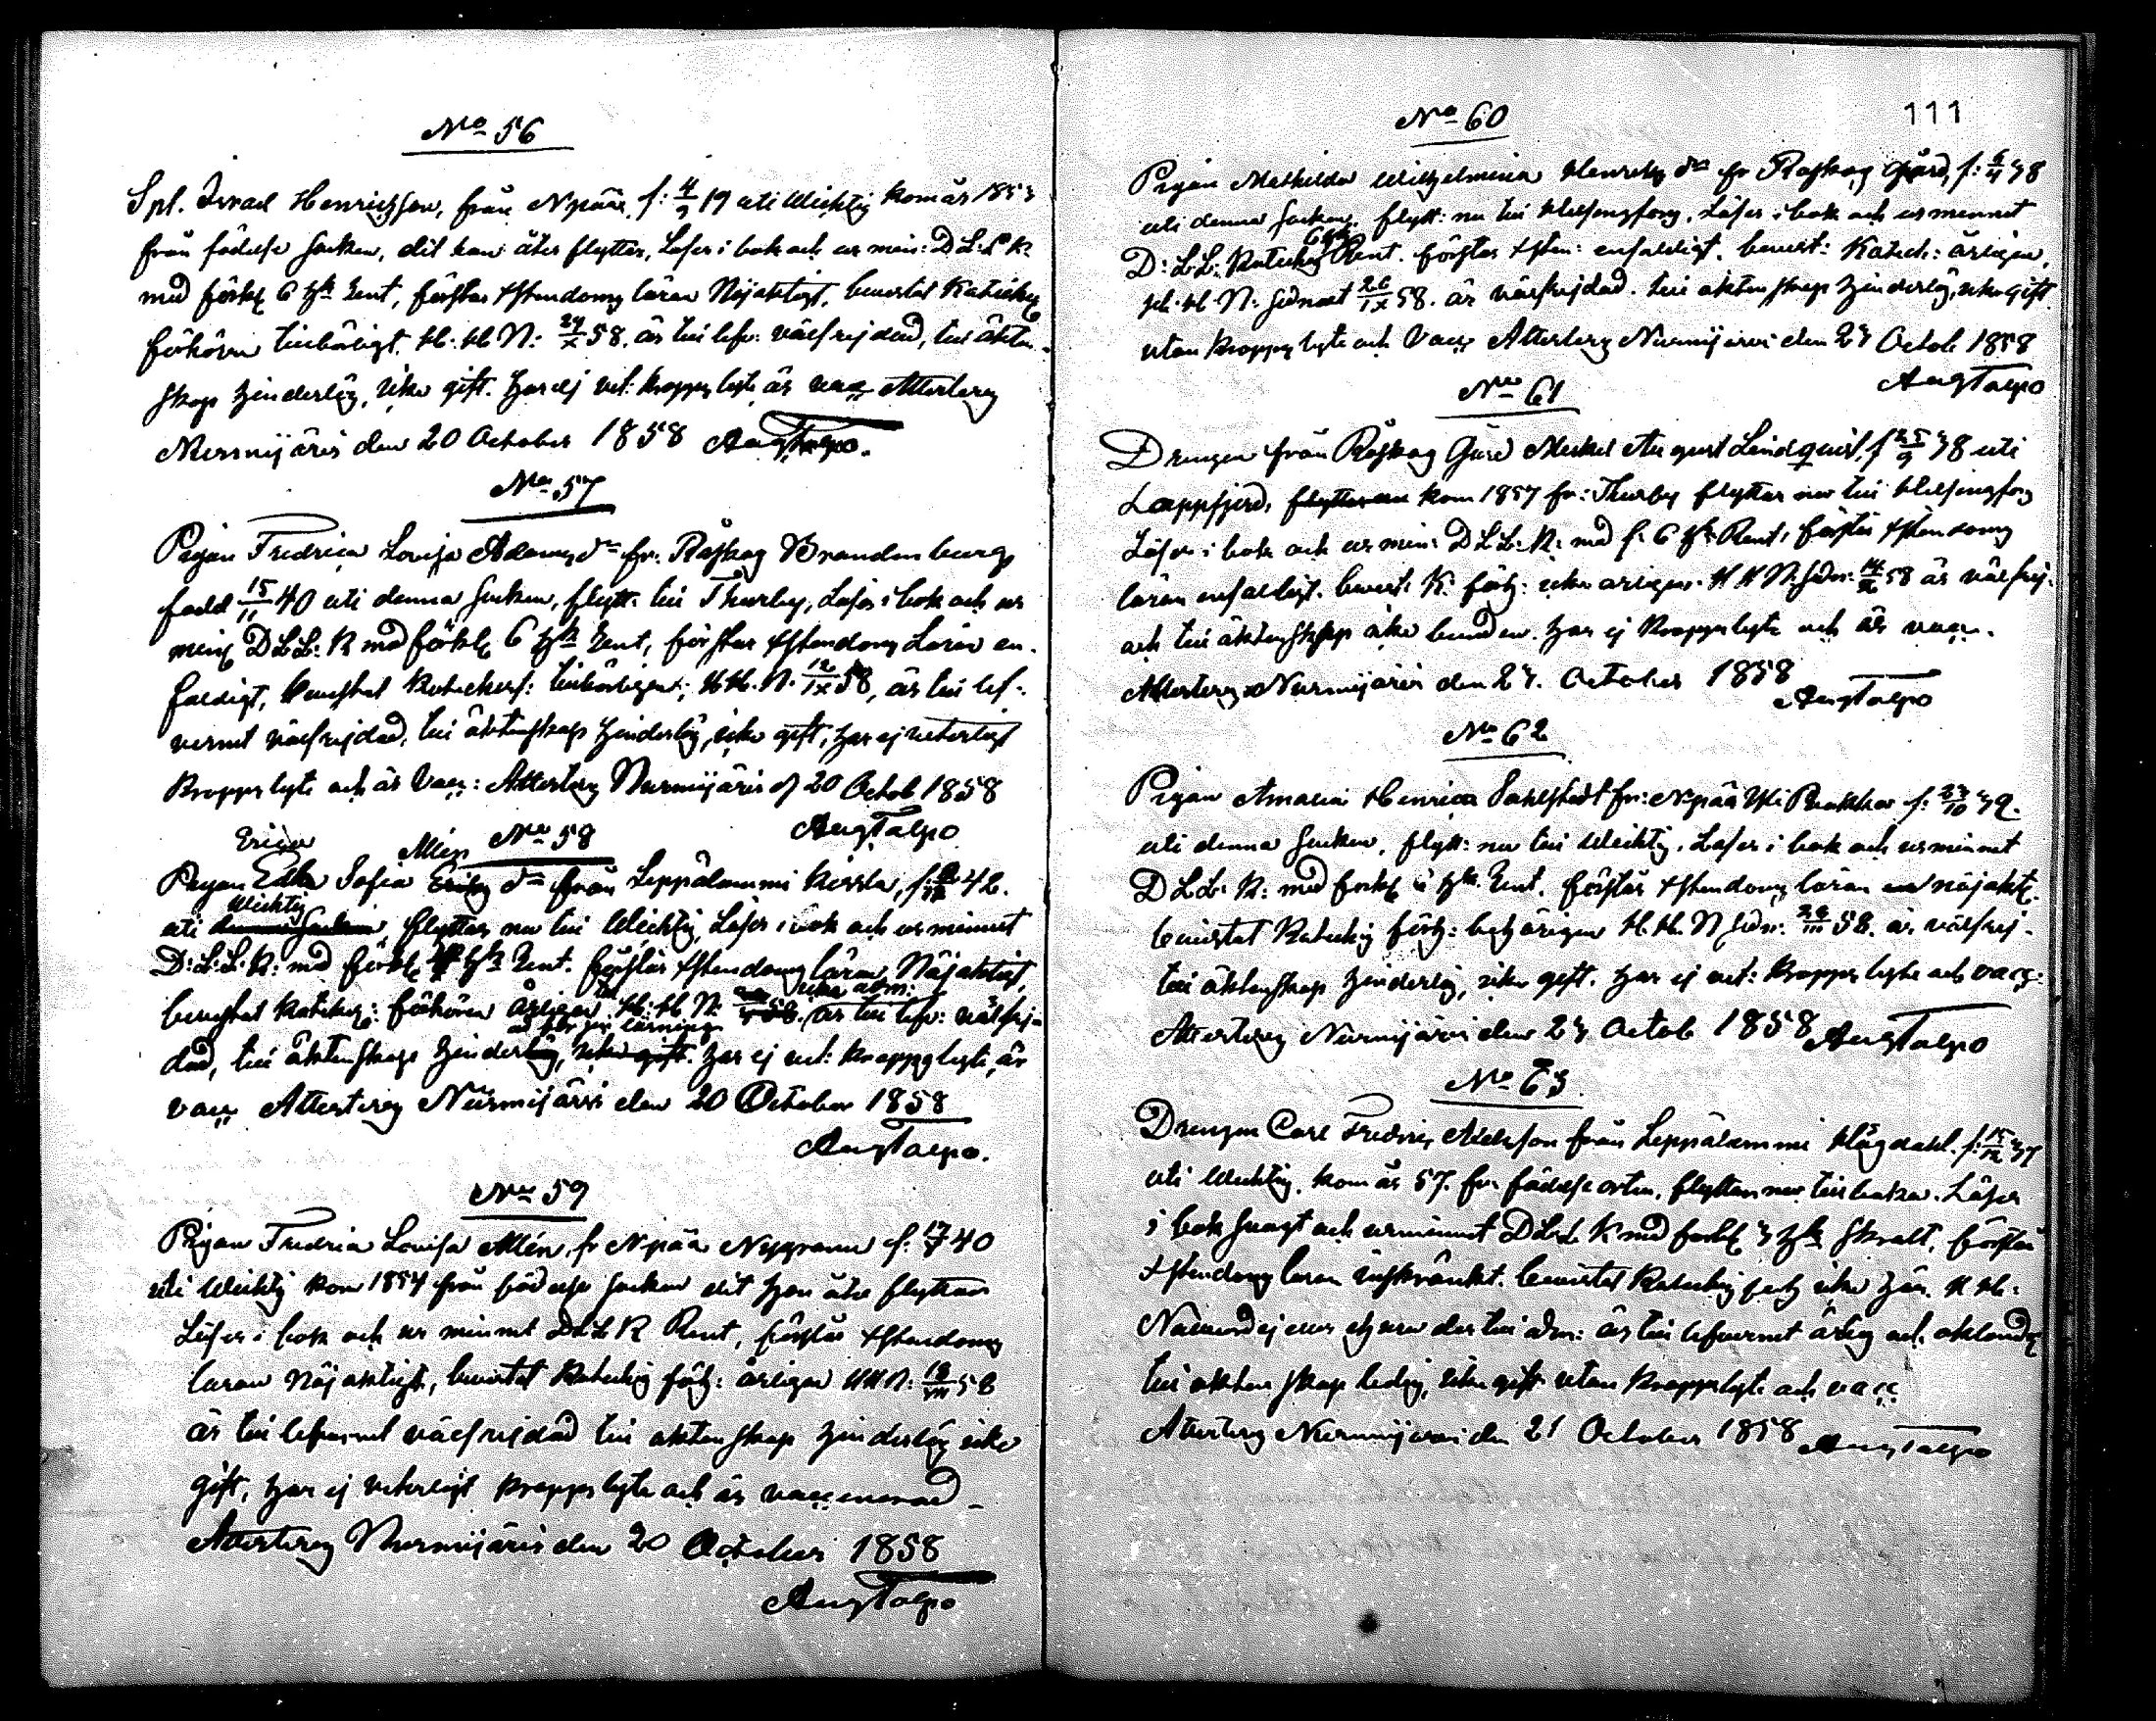 No 56
Spl. Israel Henricsson, från Npää f: 4/9 19 uti Wichtis kom år 1853
från födelse socken, dit han åter flyttar, Läser i bok och ur min: D L. L. K.
med förkl 6 H. st. Rent, förstår Xstendoms läran Nöjaktigt, bevistat Katekes
förhören tillbörligt. H. H. N: 24/X 58. är till lefv: välfrejdad, till äkten-
skap hinderlös, icke gift. har ej vet: kroppslyte är vacc Attesteras
Nurmijärvi den 20 October 1858 Aug Talpo.
No 57
Pigan Fredrica Lovisa Adams dr fr. Råskog Brandenburgs
född 15/11 40 uti denna socken, flytt. till Thusby, Läser i bok och ur
min D L L: K med förkl 6 H. st. Rent, förstår Xstendoms Läran en-
faldigt, bevistat Katekesf: tillbörligen; H H. N. 12/IX 58, är till lef-
vernet välfrejdad, till äktenskap hinderlös, icke gift, har ej veterligt
kroppslyte och är vacc: Attesteras Nurmijärvi d 20 Octob 1858
Aug Talpo
No 58
Erica Allén
Pigan Edla Sofia Erics dr från Leppälammi Kissla, 42.
Wichtis
uti denna socken, flyttar nu till Wichtis, Läser i bok och ur minnet
D: L. L. K: med förkl H. st. Rent. förstår Xstendoms läran Nöjaktigt,
icke adm:
bevistat Katekes: förhören årligen H. H. N: 58. är till lefv: välfrej-
dad, till äktenskap hinderlös, icke gift. har ej vet: kroppslyte, är
vacc Attesteras Nurmijärvi den 20 October 1858
Aug Talpo.
No 59
Pigan Fredrica Lovisa Allén, fr Npää Nygrann f: 17/7 40
uti Wichtis kom 1854 från födelse socken dit hon åter flyttar
Läser i bok och ur minnet D L L K Rent, förstår Xstendoms
läran Nöjaktigt, bevistat Katekis förh: årligen H H N: 18/VIII 58
är till lefvernet välfrejdad till äktenskap hinderlös icke
gift, har ej veterligt kroppslyte och är vaccinerad
Attesteras Nurmijärvi den 20 October 1858
Aug Talpo
111
No 60
Pigan Mathilda Wilhelmina Henrics dr fr Råskog Gård, f: 6/4 38
uti denna socken. flytt: nu till Helsingfors, Läser i bok och ur minnet
D: L. L: Katekes Rent. förstår Xsten: enfaldigt. bevist: Katek: årligen,
H. H. N. sednast 26/IX 58. är välfrejdad. till äktenskap hinderlös, icke gift
utan kroppslyte och Vacc Attesteras Nurmijärvi den 23 Octob 1858
Aug Talpo
No 61
Drengen från Råskog Gård Mickel August Lindquist, f 25/9 38 uti
Lappfjerd, flyttar kom 1857 fr: Thusby flyttar nu till Helsingfors
Läser i bok och ur min: D L L: K: med f: 6 H. st. Rent, förstår Xstendoms
läran enfaldigt. bevist: K: förh: icke årligen. H H N: sedn: 14/X 58 är välfrej-
och till äktenskap icke bunden. har ej kroppslyte och är vacc.
Attesteras Nurmijärvi den 23. October 1858
Aug Talpo
No 62
Pigan Amalia Henrica Sahlstedt fr: Npää Yli Pukkar f: 23/10 39.
uti denna socken, flytt: nu till Wichtis. Läser i bok och ur minnet
D L L: K: med förkl H. st. Rent. förstår Xstendoms läran nöjaktl.
bevistat Katekis förh: behörigen H. H. N, sedn: 29/VIII 58. är välfrej-
till äktenskap hinderlös, icke gift. har ej vet: kroppslyte och vacc:
Attesteras Nurmijärvi den 23 Octob 1858 Aug Talpo
No 63
Drengen Carl Fredric Aleksson från Leppälammi Högdahl. f: 15/12 37
uti Wichtis. kom år 57. fr. födelse orten, flyttar nu tillbaka. Läser
i bok svagt och ur minnet D L L K med förkl 3 H. st. skralt, förstår
Xstendoms läran inskränkt. bevistat Katekis förh icke här. H H:
Nattvard ej eller ehuru der till adm: är till lefvernet ärlig och oklandl
till äktenskap ledig, icke gift utan kroppslyte och vacc
Attesteras Nurmijärvi den 21 October 1858 Aug Talpo